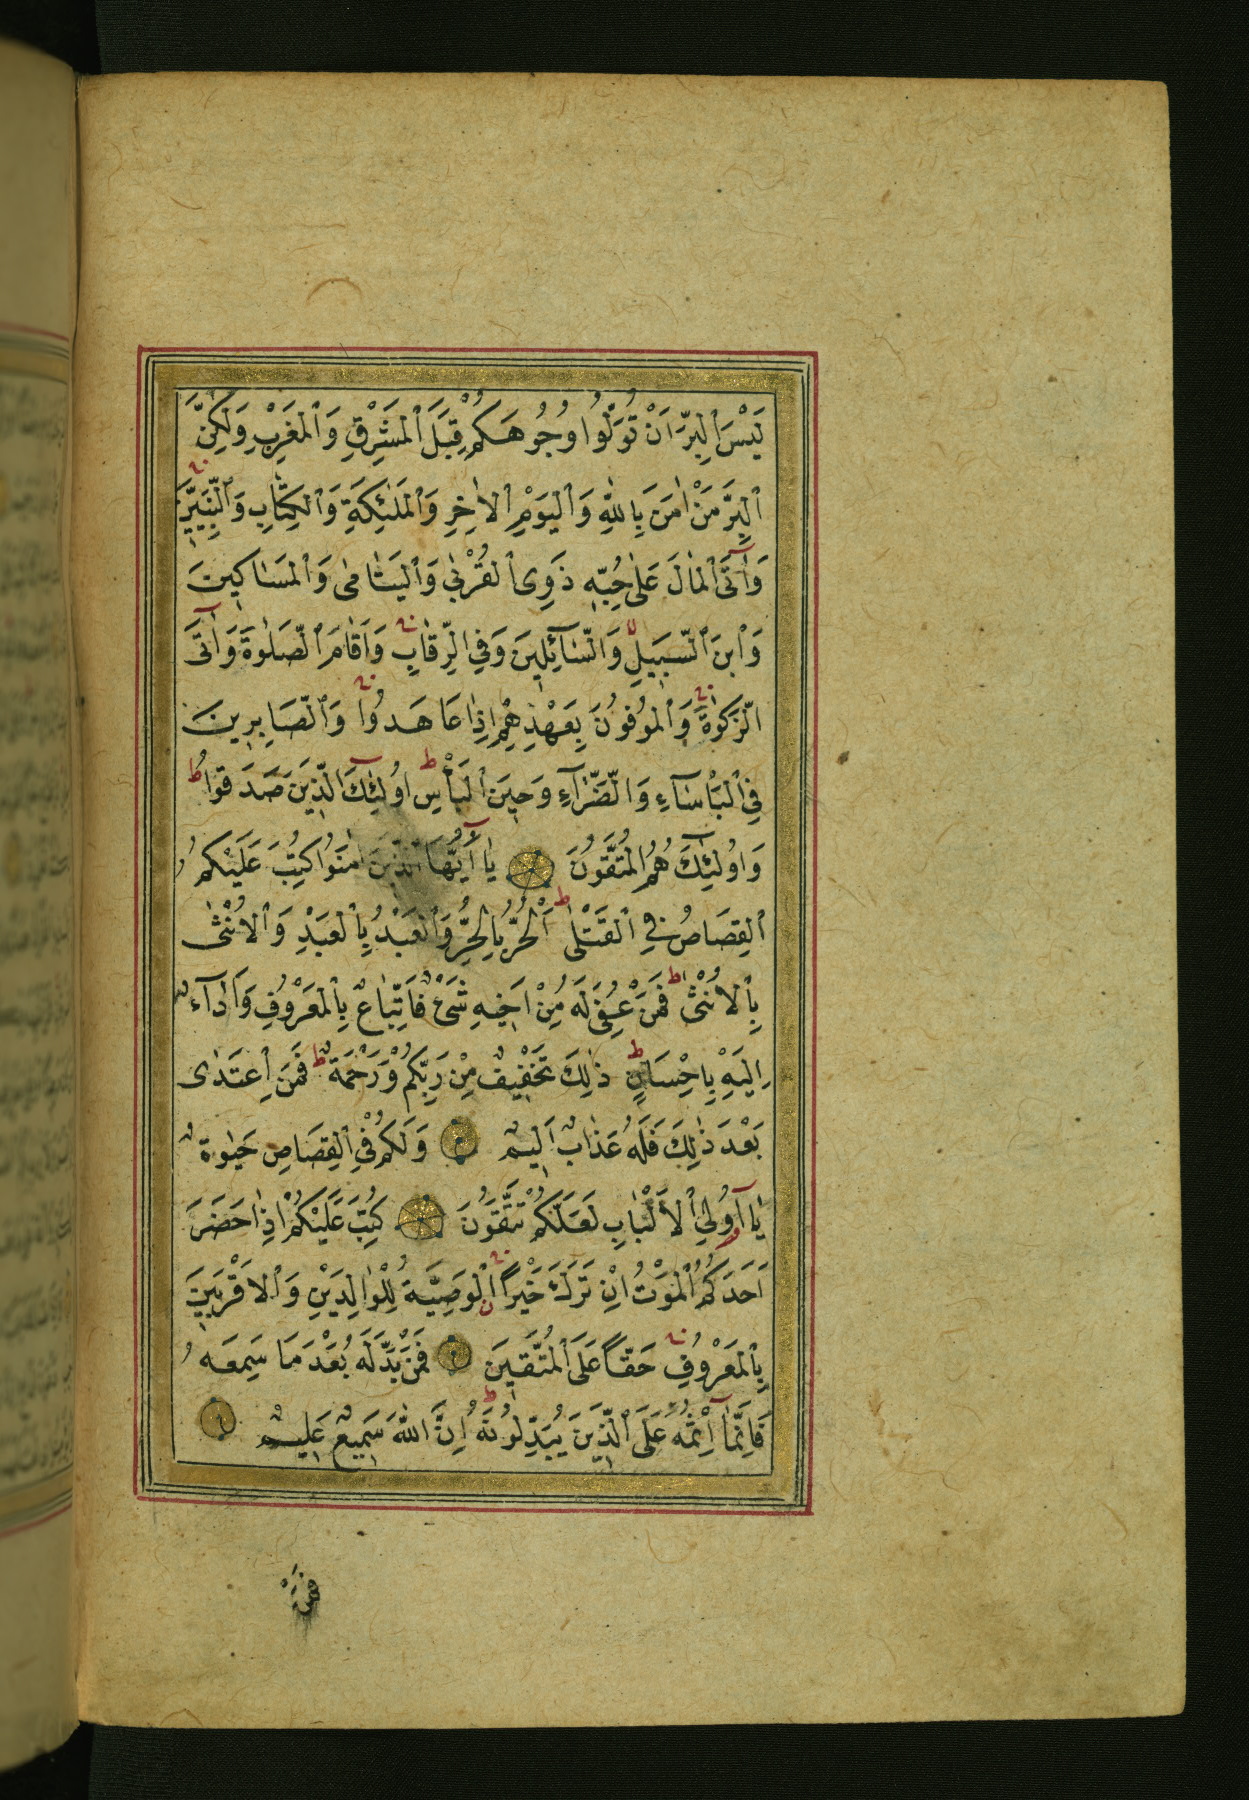 لَيْسَ ٱلْبِرَّ اَنْ تُوَلُّوا وُجُوهَكُمْ قِبَلَ ٱلْمَشْرِقِ وَٱلْمَغْرِبِ وَلٰكِنَّ
ٱلْبِرَّ مَنْ اٰمَنَ بِاللّٰهِ وَٱلْيَوْمِ ٱلْاٰخِرِ وَٱلْمَلٰئِكَةِ وَٱلْكِتَابِ وَٱلنَّبِيّٖنَ
وَاٰتَى ٱلْمَالَ عَلٰى حُبِّهٖ ذَوِى ٱلْقُرْبٰى وَٱلْيَتَامٰى وَٱلْمَسَاكِينَ
وَٱبْنَ ٱلسَّبِيلِ وَٱلسَّآئِلِينَ وَفِى ٱلرِّقَابِ وَاَقَامَ ٱلصَّلٰوةَ وَاٰتَى
ٱلزَّكٰوةَ وَٱلْمُوفُونَ بِعَهْدِهِمْ اِذَا عَاهَدُوا وَٱلصَّابِرِينَ
فِى ٱلْبَأْسَآءِ وَٱلضَّرَّآءِ وَحِينَ ٱلْبَأْسِ ط اُولٰٓئِكَ ٱلَّذِينَ صَدَقُوا ط
وَاُولٰٓئِكَ هُمُ ٱلْمُتَّقُونَ يَآ اَيُّهَا ٱلَّذِينَ اٰمَنُوا كُتِبَ عَلَيْكُمُ
ٱلْقِصَاصُ فِى ٱلْقَتْلٰى ط ٱَلْحُرُّ بِالْحُرِّ وَٱلْعَبْدُ بِٱلْعَبْدِ وَٱلْاُنْثٰى
بِٱلْاُنْثٰى ط فَمَنْ عُفِىَ لَهُ مِنْ اَخِيهِ شَىْءٌ فَاتِّبَاعٌ بِٱلْمَعْرُوفِ وَاَدَآءٌ
اِلَيْهِ بِاِحْسَانٍ ط ذٰلِكَ تَخْفِيفٌ مِنْ رَبِّكُمْ وَرَحْمَةٌ ط فَمَنِ ٱعْتَدٰى
بَعْدَ ذٰلِكَ فَلَهُ عَذَابٌ اَلِيمٌ وَلَكُمْ فِى ٱلْقِصَاصِ حَيٰوةٌ
يَآ اُولِى ٱلْاَلْبَابِ لَعَلَّكُمْ تَتَّقُونَ كُتِبَ عَلَيْكُمْ اِذَا حَضَرَ
اَحَدَكُمُ ٱلْمَوْتُ اِنْ تَرَكَ خَيْرًا ٱلْوَصِيَّةُ لِلْوَالِدَيْنِ وَٱلْاَقْرَبِينَ
بِٱلْمَعْرُوفِ حَقًّا عَلَى ٱلْمُتَّقِينَ فَمَنْ بَدَّلَهُ بَعْدَ مَا سَمِعَهُ
فَاِنَّمَآ اِثْمُهُ عَلَى ٱلَّذِينَ يُبَدِّلُونَهُ ط اِنَّ اللّٰهَ سَمِيعٌ عَلِيمٌ
فَمَنْ